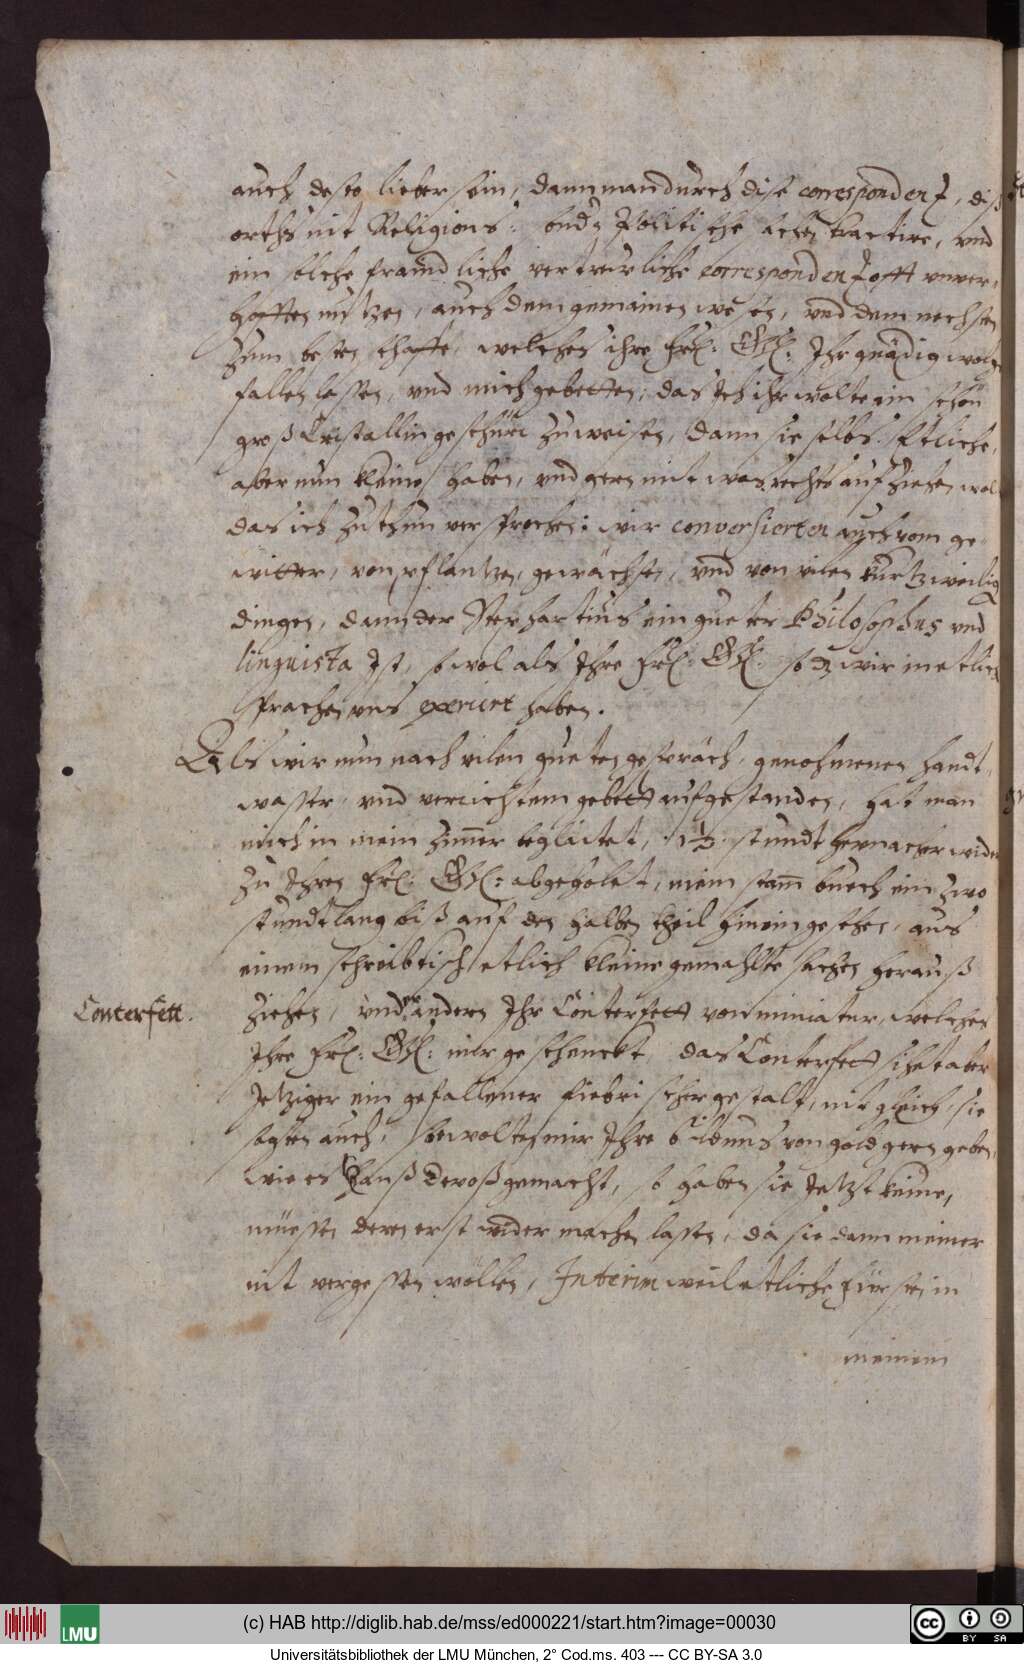 auch desto lieber sein, dann man durch dise correspondentz, diß
orths nit Religions: sachen tractire, vnd
ein solche fraindliche vertreuwliche correspondentz offt vnver-
hofften nutzen, auch dem gemainen wesen, vnd dem nechsten
zum besten schaffe, welches ihre Frl: Gn: Jhr gnädig wol
fallen lassen, vnd mich gebetten, das Jch ihr wolte ein schön
groß Cristallin geschürr zuweisen, dann sie selbs etliche,
aber nun kleine haben, vnd gern mit was rechts aufziehen wol
das ich zu thun versprochen: wir conversierten auch vom ge-
witter, von pflantzen, gewächsen, vnd von vilen kurtzweilig
dingen, dann der ein gueter Philosophus vnd
linguista Jst, so wol als Jhre Frl: Gn: so das wir in etlich
sprachen vns exerciert haben.
Als wir nun nach vilen gueten gespräch, genohmenen handt
wasser, vnd verrichtem gebett aufgestanden, hat man
mich in mein zimer beglaitet, 1½ stundt hernacher wider
zu Jhren Frl: Gn: abgeholet, mein stam buech ein zwo
stundt lang biß auf den halben theil hinein gesehen, aus
einem schreibtisch etlich kleine gemahlte sachen herauß
Conterfett.
ziehen, vnder andern Jhr Conterfett von miniatur, welches
Jhre Frl: Gn: mir geschenckt, das Conterfett sihet aber
Jetziger ein gefallener fiebrischer gestalt, nit gleich, sie
sagten auch, sie wolten mir Jhre bildnus von gold gern geben,
wie es Hanß gemacht, so haben sie Jetzt keine,
müessen deren erst wider machen lassen, da sie dann meiner
nit vergessen wöllen, Interim weil etliche Fürsten in
meinem
(c) HAB http://diglib.hab.de/mss/ed000221/start.htm?image=00030
LMU
BY SA
Universitätsbibliothek der LMU München, 2° Cod.ms. 403 --- CC BY-SA 3.0